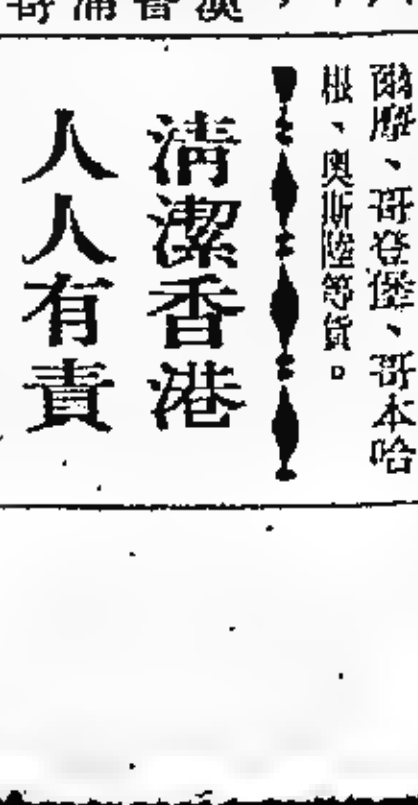 爾摩、哥登堡、哥本哈
根、奧斯陸等貨。
清潔香港
人人有責